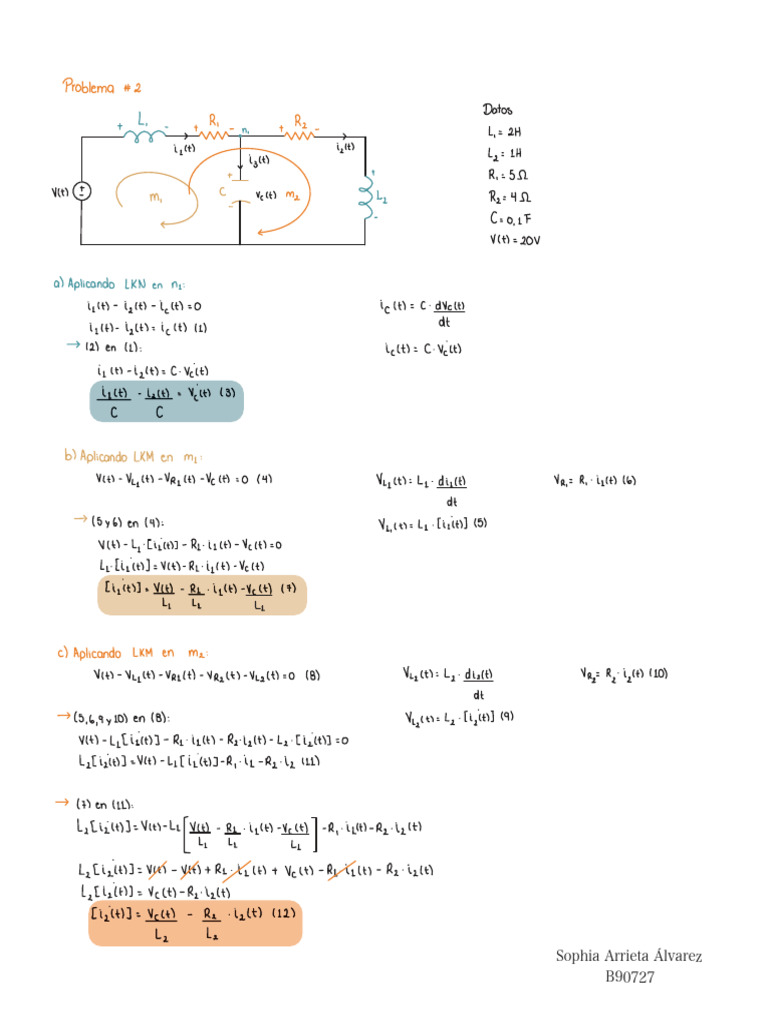 Problema #2
+ L₁ -
+ R₁ -
n₁
+ R₂ -
i₁(t)
i₂(t)
i₃(t)
V(t)
+
-
m₁
+
C
-
Vc(t)
m₂
+
L₂
-
Datos
L₁ = 2H
L₂ = 1H
R₁ = 5Ω
R₂ = 4Ω
C = 0,1F
V(t) = 20V
a) Aplicando LKN en n₁:
i₁(t) - i₂(t) - ic(t) = 0
ic(t) = C · dVc(t)/dt
i₁(t) - i₂(t) = ic(t) (1)
ic(t) = C · Vc˙(t)
→ (2) en (1):
i₁(t) - i₂(t) = C · Vc˙(t)
i₁(t)/C - i₂(t)/C = Vc˙(t) (3)
b) Aplicando LKM en m₁:
V(t) - VL₁(t) - VR₁(t) - Vc(t) = 0 (4)
VL₁(t) = L₁ · di₁(t)/dt
VR₁ = R₁ · i₁(t) (6)
→ (5 y 6) en (4):
VL₁(t) = L₁ · [i₁˙(t)] (5)
V(t) - L₁ · [i₁˙(t)] - R₁ · i₁(t) - Vc(t) = 0
L₁ · [i₁˙(t)] = V(t) - R₁ · i₁(t) - Vc(t)
[i₁˙(t)] = V(t)/L₁ - R₁/L₁ · i₁(t) - Vc(t)/L₁ (7)
c) Aplicando LKM en m₂:
V(t) - VL₁(t) - VR₁(t) - VR₂(t) - VL₂(t) = 0 (8)
VL₂(t) = L₂ · di₂(t)/dt
VR₂ = R₂ · i₂(t) (10)
→ (5,6,9 y 10) en (8):
VL₂(t) = L₂ · [i₂˙(t)] (9)
V(t) - L₁[i₁˙(t)] - R₁ · i₁(t) - R₂ · i₂(t) - L₂ · [i₂˙(t)] = 0
L₂[i₂˙(t)] = V(t) - L₁[i₁˙(t)] - R₁ · i₁ - R₂ · i₂ (11)
→ (7) en (11):
L₂[i₂˙(t)] = V(t) - L₁ [V(t)/L₁ - R₁/L₁ · i₁(t) - Vc(t)/L₁] - R₁ · i₁(t) - R₂ · i₂(t)
L₂[i₂˙(t)] = V(t) - V(t) + R₁ · i₁(t) + Vc(t) - R₁ · i₁(t) - R₂ · i₂(t)
L₂[i₂˙(t)] = Vc(t) - R₂ · i₂(t)
[i₂˙(t)] = Vc(t)/L₂ - R₂/L₂ · i₂(t) (12)
Sophia Arrieta Álvarez
B90727